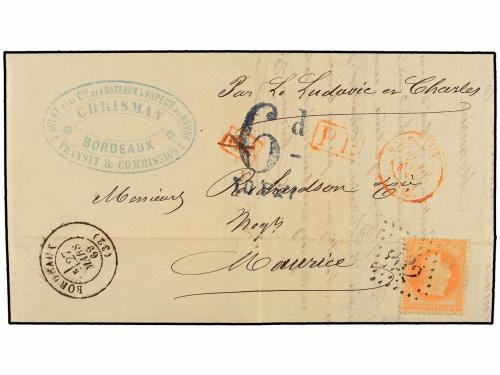 AGENT DE LA Cie DES BATEAUX A VAPEUR DU HAVRE
CHRISMAN
BORDEAUX
TRANSIT & COMMISSION
Par Le Ludovic en Charles
6d
P.D.
Messieurs Richardson & Cie
Negts
Maurice
BORDEAUX
27
MARS
69
(32)